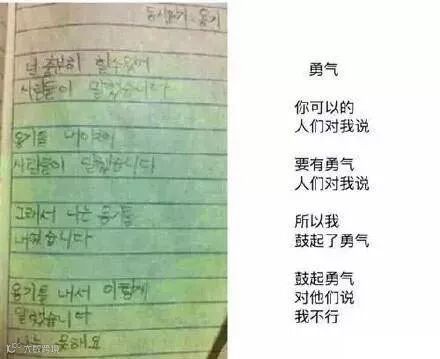 동시쓰기 - 용기
넌 충분히 할수있어
사람들이 말했습니다
용기를 내야해
사람들이 말했습니다
그래서 나는 용기를
내었습니다
용기를 내서 이렇게
말했습니다
나는 못해요
勇气
你可以的
人们对我说
要有勇气
人们对我说
所以我
鼓起了勇气
鼓起勇气
对他们说
我不行
大数跨境